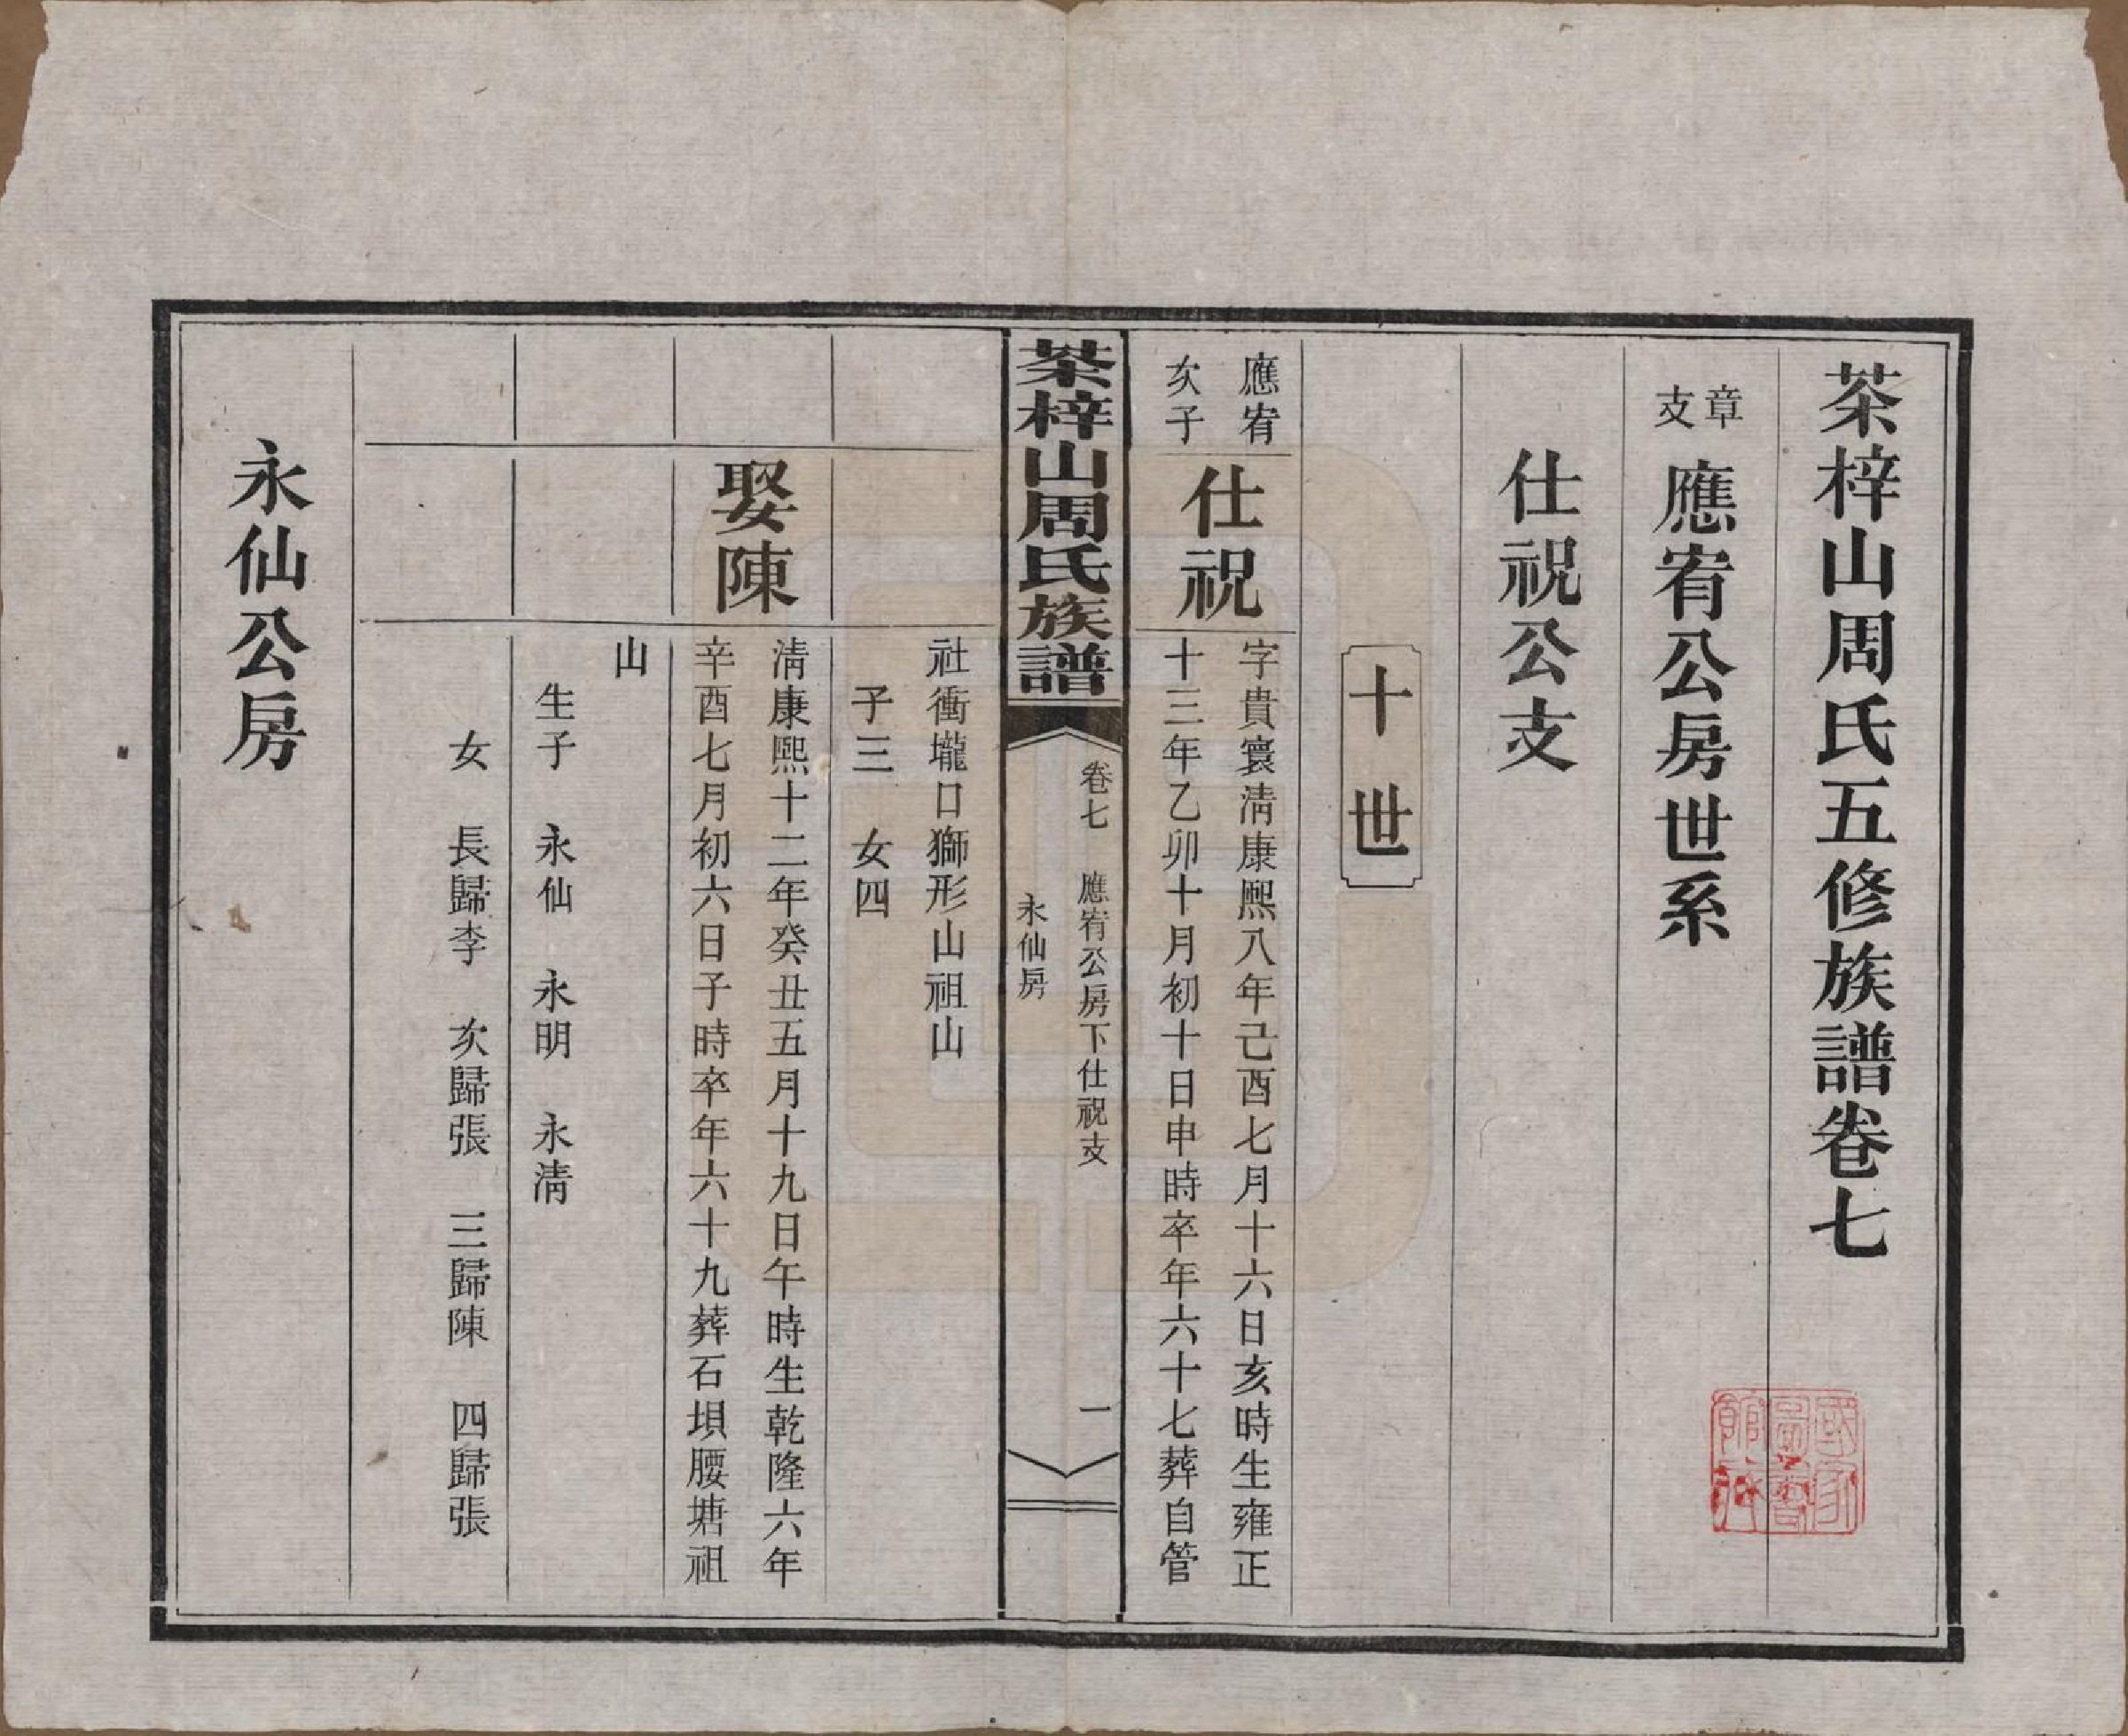 茶梓山周氏五修族譜卷七
章支
應宥公房世系
仕祝公支
十世
應宥
次子
仕祝
字貴寰淸康熙八年己酉七月十六日亥時生雍正
十三年乙卯十月初十日申時卒年六十七葬自管
茶梓山周氏族譜
卷七 應宥公房下仕祝支
永仙房
一
社衝壠口獅形山祖山
子三 女四
娶陳
淸康熙十二年癸丑五月十九日午時生乾隆六年
辛酉七月初六日子時卒年六十九葬石埧腰塘祖
山
生子 永仙 永明 永淸
女 長歸李 次歸張 三歸陳 四歸張
永仙公房
國家
圖書
館藏